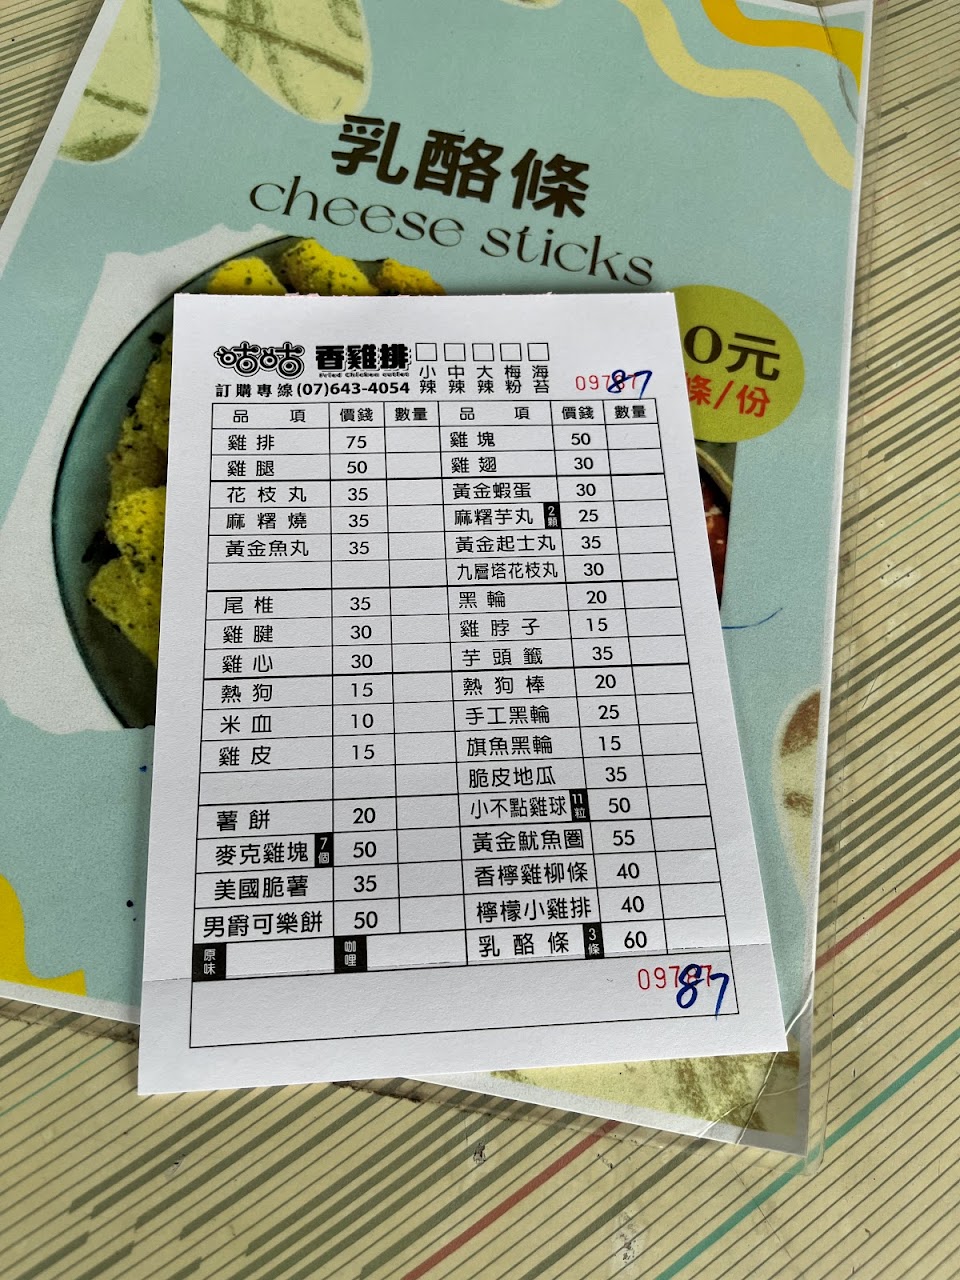 乳酪條
cheese sticks
0元
條/份
咕咕 香雞排
Fried Chicken cutlet
小辣 中辣 大辣 梅粉 海苔
訂購專線(07)643-4054
87
品項 價錢 數量 品項 價錢 數量
雞排 75 雞塊 50
雞腿 50 雞翅 30
花枝丸 35 黃金蝦蛋 30
麻糬燒 35 麻糬芋丸 2顆 25
黃金魚丸 35 黃金起士丸 35
九層塔花枝丸 30
尾椎 35 黑輪 20
雞腱 30 雞脖子 15
雞心 30 芋頭籤 35
熱狗 15 熱狗棒 20
米血 10 手工黑輪 25
雞皮 15 旗魚黑輪 15
脆皮地瓜 35
薯餅 20 小不點雞球 11粒 50
麥克雞塊 7個 50 黃金魷魚圈 55
美國脆薯 35 香檸雞柳條 40
男爵可樂餅 50 檸檬小雞排 40
原味 咖哩 乳酪條 3條 60
87